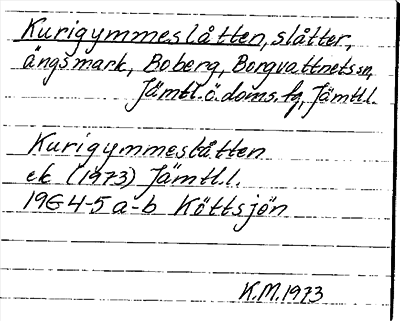 Kurigymmeslåtten, slåtter,
ängsmark, Boberg, Borgvattnets sn,
Jämtl. ö. doms. tg, Jämtl.l.
Kurigymmeslåtten
ek (1973) Jämtl.l.
19G4-5 a-b Köttsjön
K.M.1973